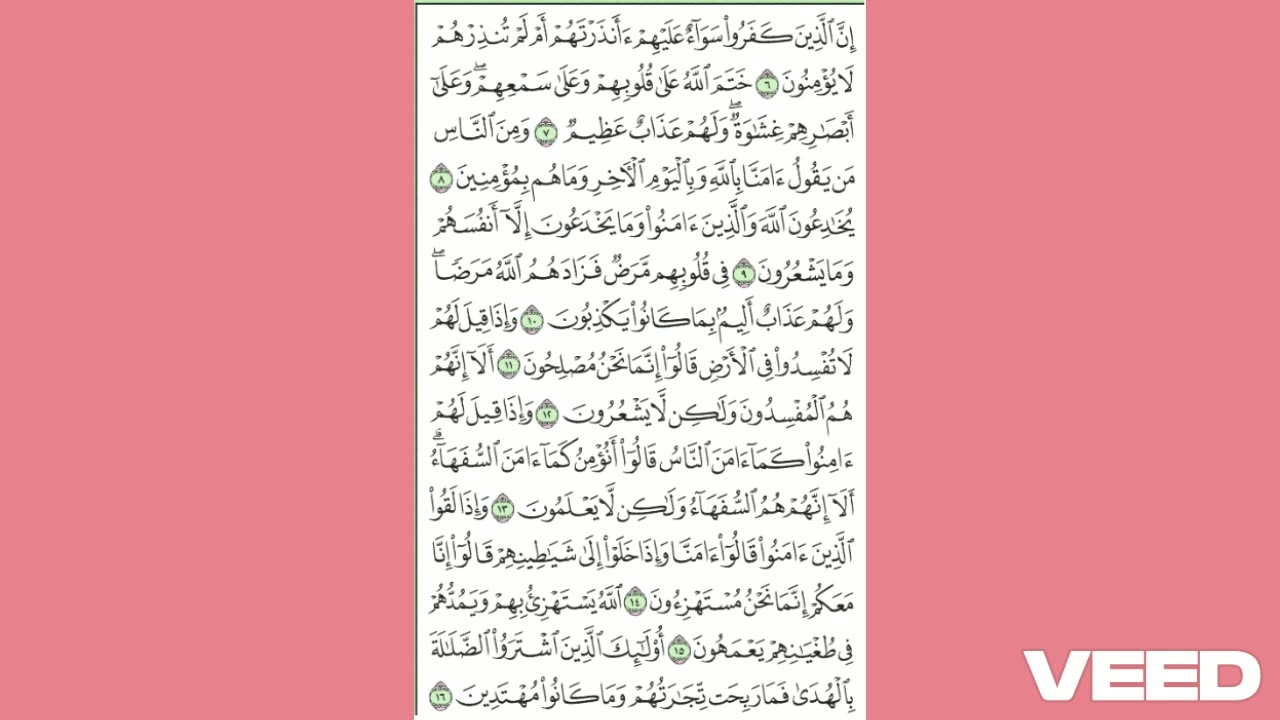 إِنَّ ٱلَّذِينَ كَفَرُوا۟ سَوَآءٌ عَلَيْهِمْ ءَأَنذَرْتَهُمْ أَمْ لَمْ تُنذِرْهُمْ
لَا يُؤْمِنُونَ ٦ خَتَمَ ٱللَّهُ عَلَىٰ قُلُوبِهِمْ وَعَلَىٰ سَمْعِهِمْ ۖ وَعَلَىٰٓ
أَبْصَٰرِهِمْ غِشَٰوَةٌ ۖ وَلَهُمْ عَذَابٌ عَظِيمٌ ٧ وَمِنَ ٱلنَّاسِ
مَن يَقُولُ ءَامَنَّا بِٱللَّهِ وَبِٱلْيَوْمِ ٱلْءَاخِرِ وَمَا هُم بِمُؤْمِنِينَ ٨
يُخَٰدِعُونَ ٱللَّهَ وَٱلَّذِينَ ءَامَنُوا۟ وَمَا يَخْدَعُونَ إِلَّآ أَنفُسَهُمْ
وَمَا يَشْعُرُونَ ٩ فِى قُلُوبِهِم مَّرَضٌ فَزَادَهُمُ ٱللَّهُ مَرَضًا ۖ
وَلَهُمْ عَذَابٌ أَلِيمٌۢ بِمَا كَانُوا۟ يَكْذِبُونَ ١٠ وَإِذَا قِيلَ لَهُمْ
لَا تُفْسِدُوا۟ فِى ٱلْأَرْضِ قَالُوٓا۟ إِنَّمَا نَحْنُ مُصْلِحُونَ ١١ أَلَآ إِنَّهُمْ
هُمُ ٱلْمُفْسِدُونَ وَلَٰكِن لَّا يَشْعُرُونَ ١٢ وَإِذَا قِيلَ لَهُمْ
ءَامِنُوا۟ كَمَآ ءَامَنَ ٱلنَّاسُ قَالُوٓا۟ أَنُؤْمِنُ كَمَآ ءَامَنَ ٱلسُّفَهَآءُ ۗ
أَلَآ إِنَّهُمْ هُمُ ٱلسُّفَهَآءُ وَلَٰكِن لَّا يَعْلَمُونَ ١٣ وَإِذَا لَقُوا۟
ٱلَّذِينَ ءَامَنُوا۟ قَالُوٓا۟ ءَامَنَّا وَإِذَا خَلَوْا۟ إِلَىٰ شَيَٰطِينِهِمْ قَالُوٓا۟ إِنَّا
مَعَكُمْ إِنَّمَا نَحْنُ مُسْتَهْزِءُونَ ١٤ ٱللَّهُ يَسْتَهْزِئُ بِهِمْ وَيَمُدُّهُمْ
فِى طُغْيَٰنِهِمْ يَعْمَهُونَ ١٥ أُو۟لَٰٓئِكَ ٱلَّذِينَ ٱشْتَرَوُا۟ ٱلضَّلَٰلَةَ
بِٱلْهُدَىٰ فَمَا رَبِحَت تِّجَٰرَتُهُمْ وَمَا كَانُوا۟ مُهْتَدِينَ ١٦
VEED